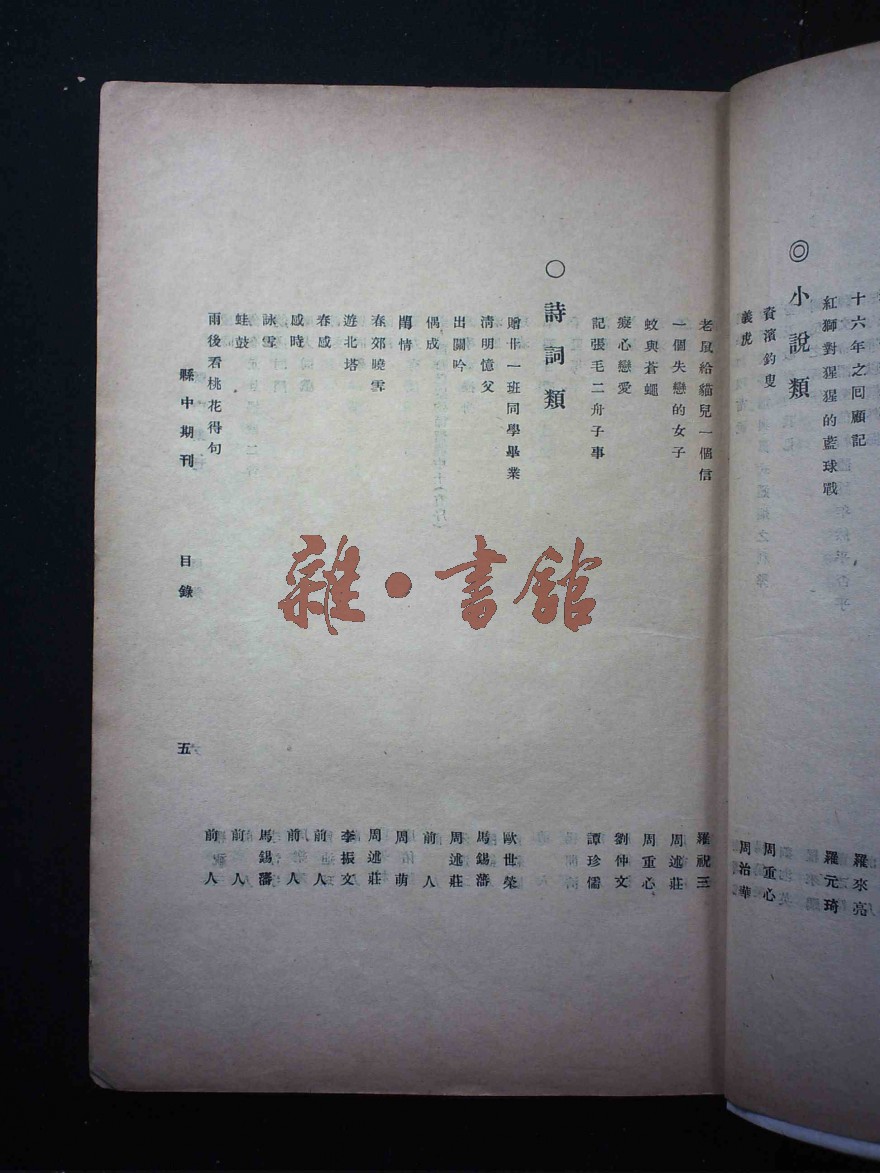 十六年之回顧記 羅來亮
紅獅對猩猩的藍球戰 羅元琦
◎小說類
賚濱釣叟 周重心
義虎 周治華
老鼠給貓兒一個信 羅祝三
一個失戀的女子 周述莊
蚊與蒼蠅 周重心
癡心戀愛 劉仲文
記張毛二舟子事 譚珍儒
○詩詞類
贈卅一班同學畢業 歐世榮
清明憶父 馬錫藩
出關吟 周述莊
偶成 前人
閨情 周萌
春郊曉雪 周述莊
遊北塔 李振文
春感 前人
感時 前人
詠雪 馬錫藩
蛙鼓 前人
雨後看桃花得句 前人
縣中期刊 目錄 五
雜·書館